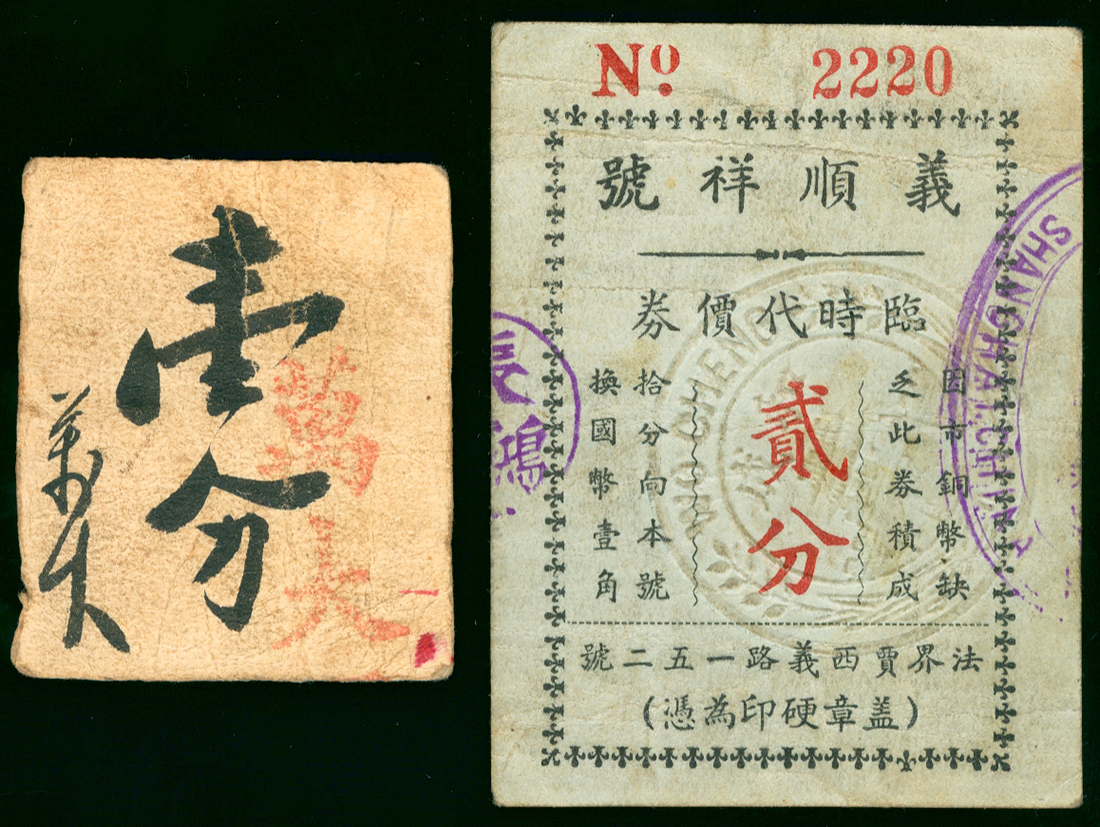 壹分
萬大
萬大
Nº 2220
義順祥號
臨時代價券
因市銅幣缺
乏此券積成
貳分
拾分向本號
換國幣壹角
法界賈西義路一五二號
(蓋章硬印為憑)
SHANGHAI.CHINA
WO CHENG
鴻